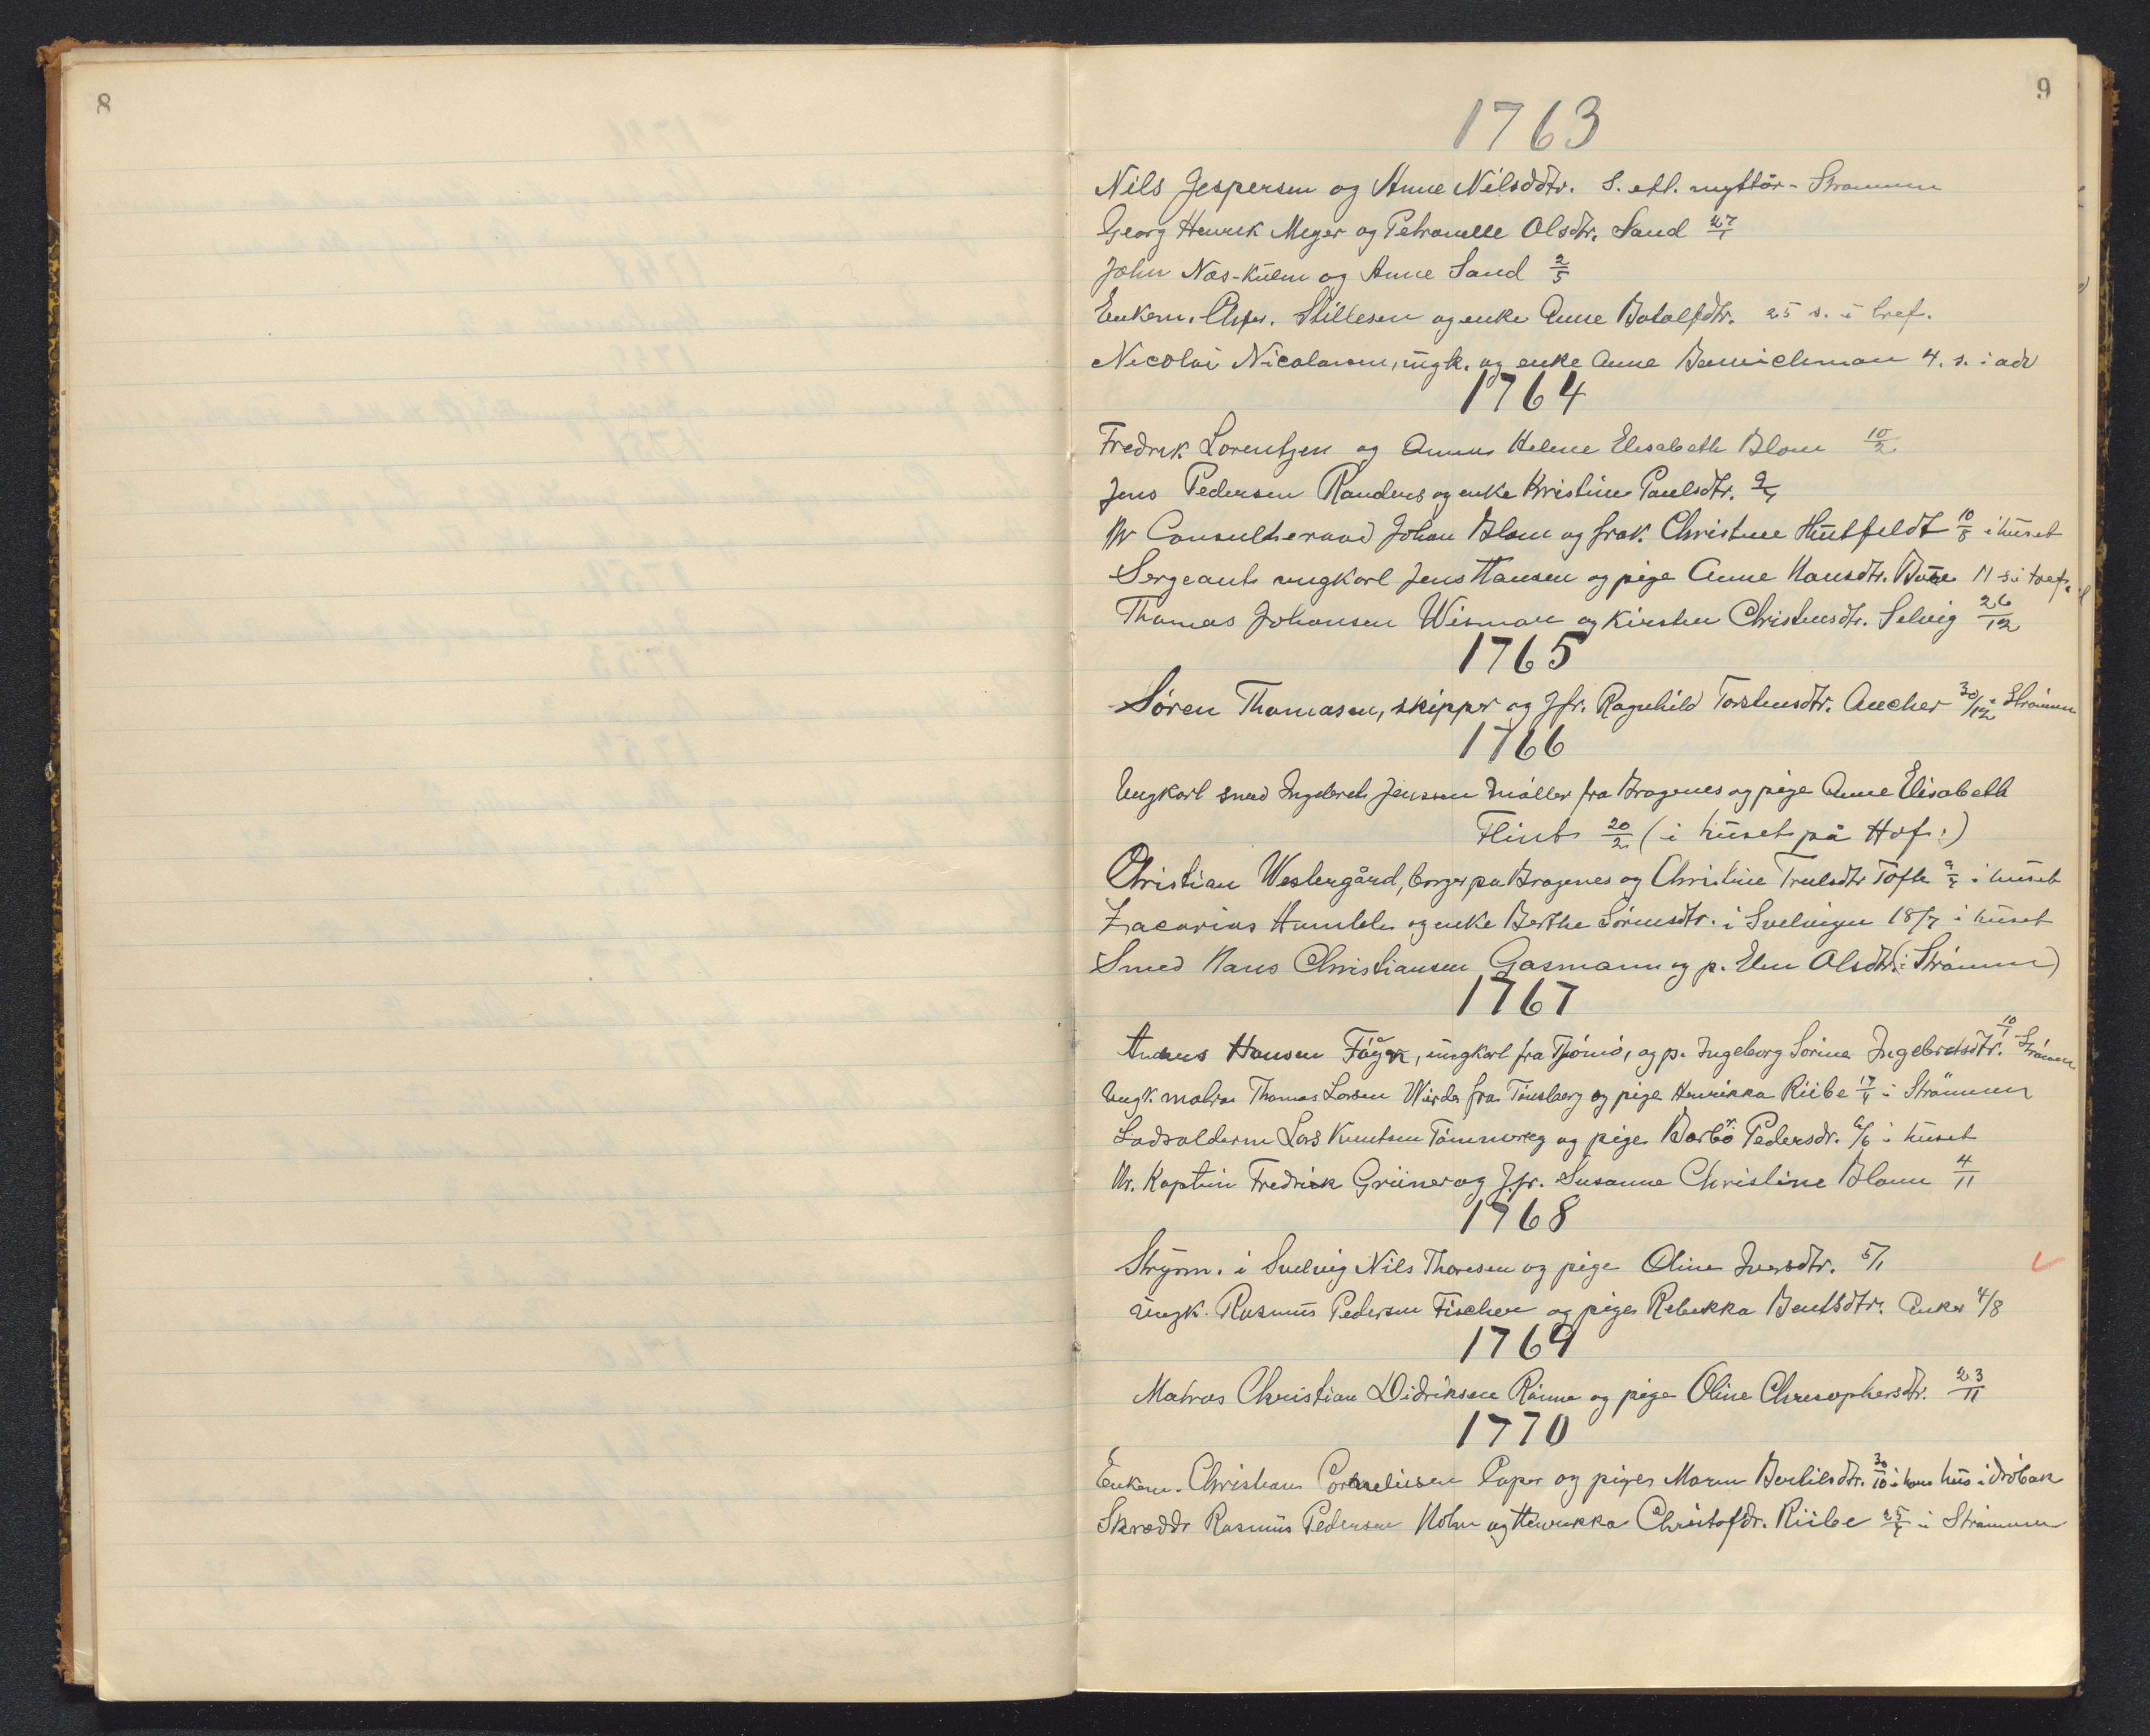 8
9
1763
Nils Jespersen og Anne Nilsddtr. S. eft. nyttår - Strømmen
Georg Henrik Meyer og Petronelle Olsdtr. Sand 27/1
John Næs-Kulm og Anne Sand 2/5
Enkem. Chfr. Stillesen og enke Anne Botolfdtr. 25 s. i tref.
Nicolai Nicolaisen, ungk. og enke Anne 4. s. i adv
1764
Fredrik Lorentzen og Anna Helene Elisabeth Blom 10/2
Jens Pedersen Randers og enke Kristine Paulsdtr. 9/4
Hr Consulteraad Johan Blom og frøk. Christine Hütfeldt 10/8 i huset
Sergeant ungkarl Jens Hansen og pige Anne Hansdtr. 11 s i tref.
Thomas Johansen Wisman og Kirsten Christensdtr. Selvig 26/12
1765
Søren Thomasen, skipper og Jfr. Ragnhild Torstensdtr. Ancher 30/12 i Strømm
1766
Ungkarl smed Ingebret Jenssen Møller fra Bragenes og pige Anne Elisabeth
Flint 20/2 (i huset på Hof:)
Christian Westergård, borger paa Bragenes og Christine Trulsdtr Tofte 9/4 i huset
Zacarias Humble og enke Berthe Sörensdtr. i Svelvigen 18/7 i huset
Smed Hans Christiansen Gasmann og p. Elen Olsdtr (i Strømmen)
1767
Anders Hansen Fáyk, ungkarl fra Tjömö, og p. Ingeborg Sorine Ingebretsdtr. 10/1 Strømm
Ungk. matros Thomas Larsen Wirda fra Tönsberg og pige Henrikka Riibe 17/4 i Strömmen
Ladsolderm Lars Knutsen og pige Barbö Pedersdr. 6/6 i huset
Hr. Kaptein Fredrick Grüner og Jfr. Susanne Christine Blom 4/11
1768
Styrm. i Svelvig Nils Thoresen og pige Oline Iversdtr. 5/1
Ungk. Rasmus Pedersen Fischer og pige Rebekka Bentsdtr. Anker 4/8
1769
Matros Christian Didriksen Rönne og pige Oline Chresophersdtr. 23/11
1770
Enkem. Christian Corneliusen Paper og pige Maren Bertilsdtr. 30/10 i hans hus i Dröbak
Skrædder Rasmus Pedersen Holm og Henrikka Christofdr. Riibe 25/4 i Strømmen